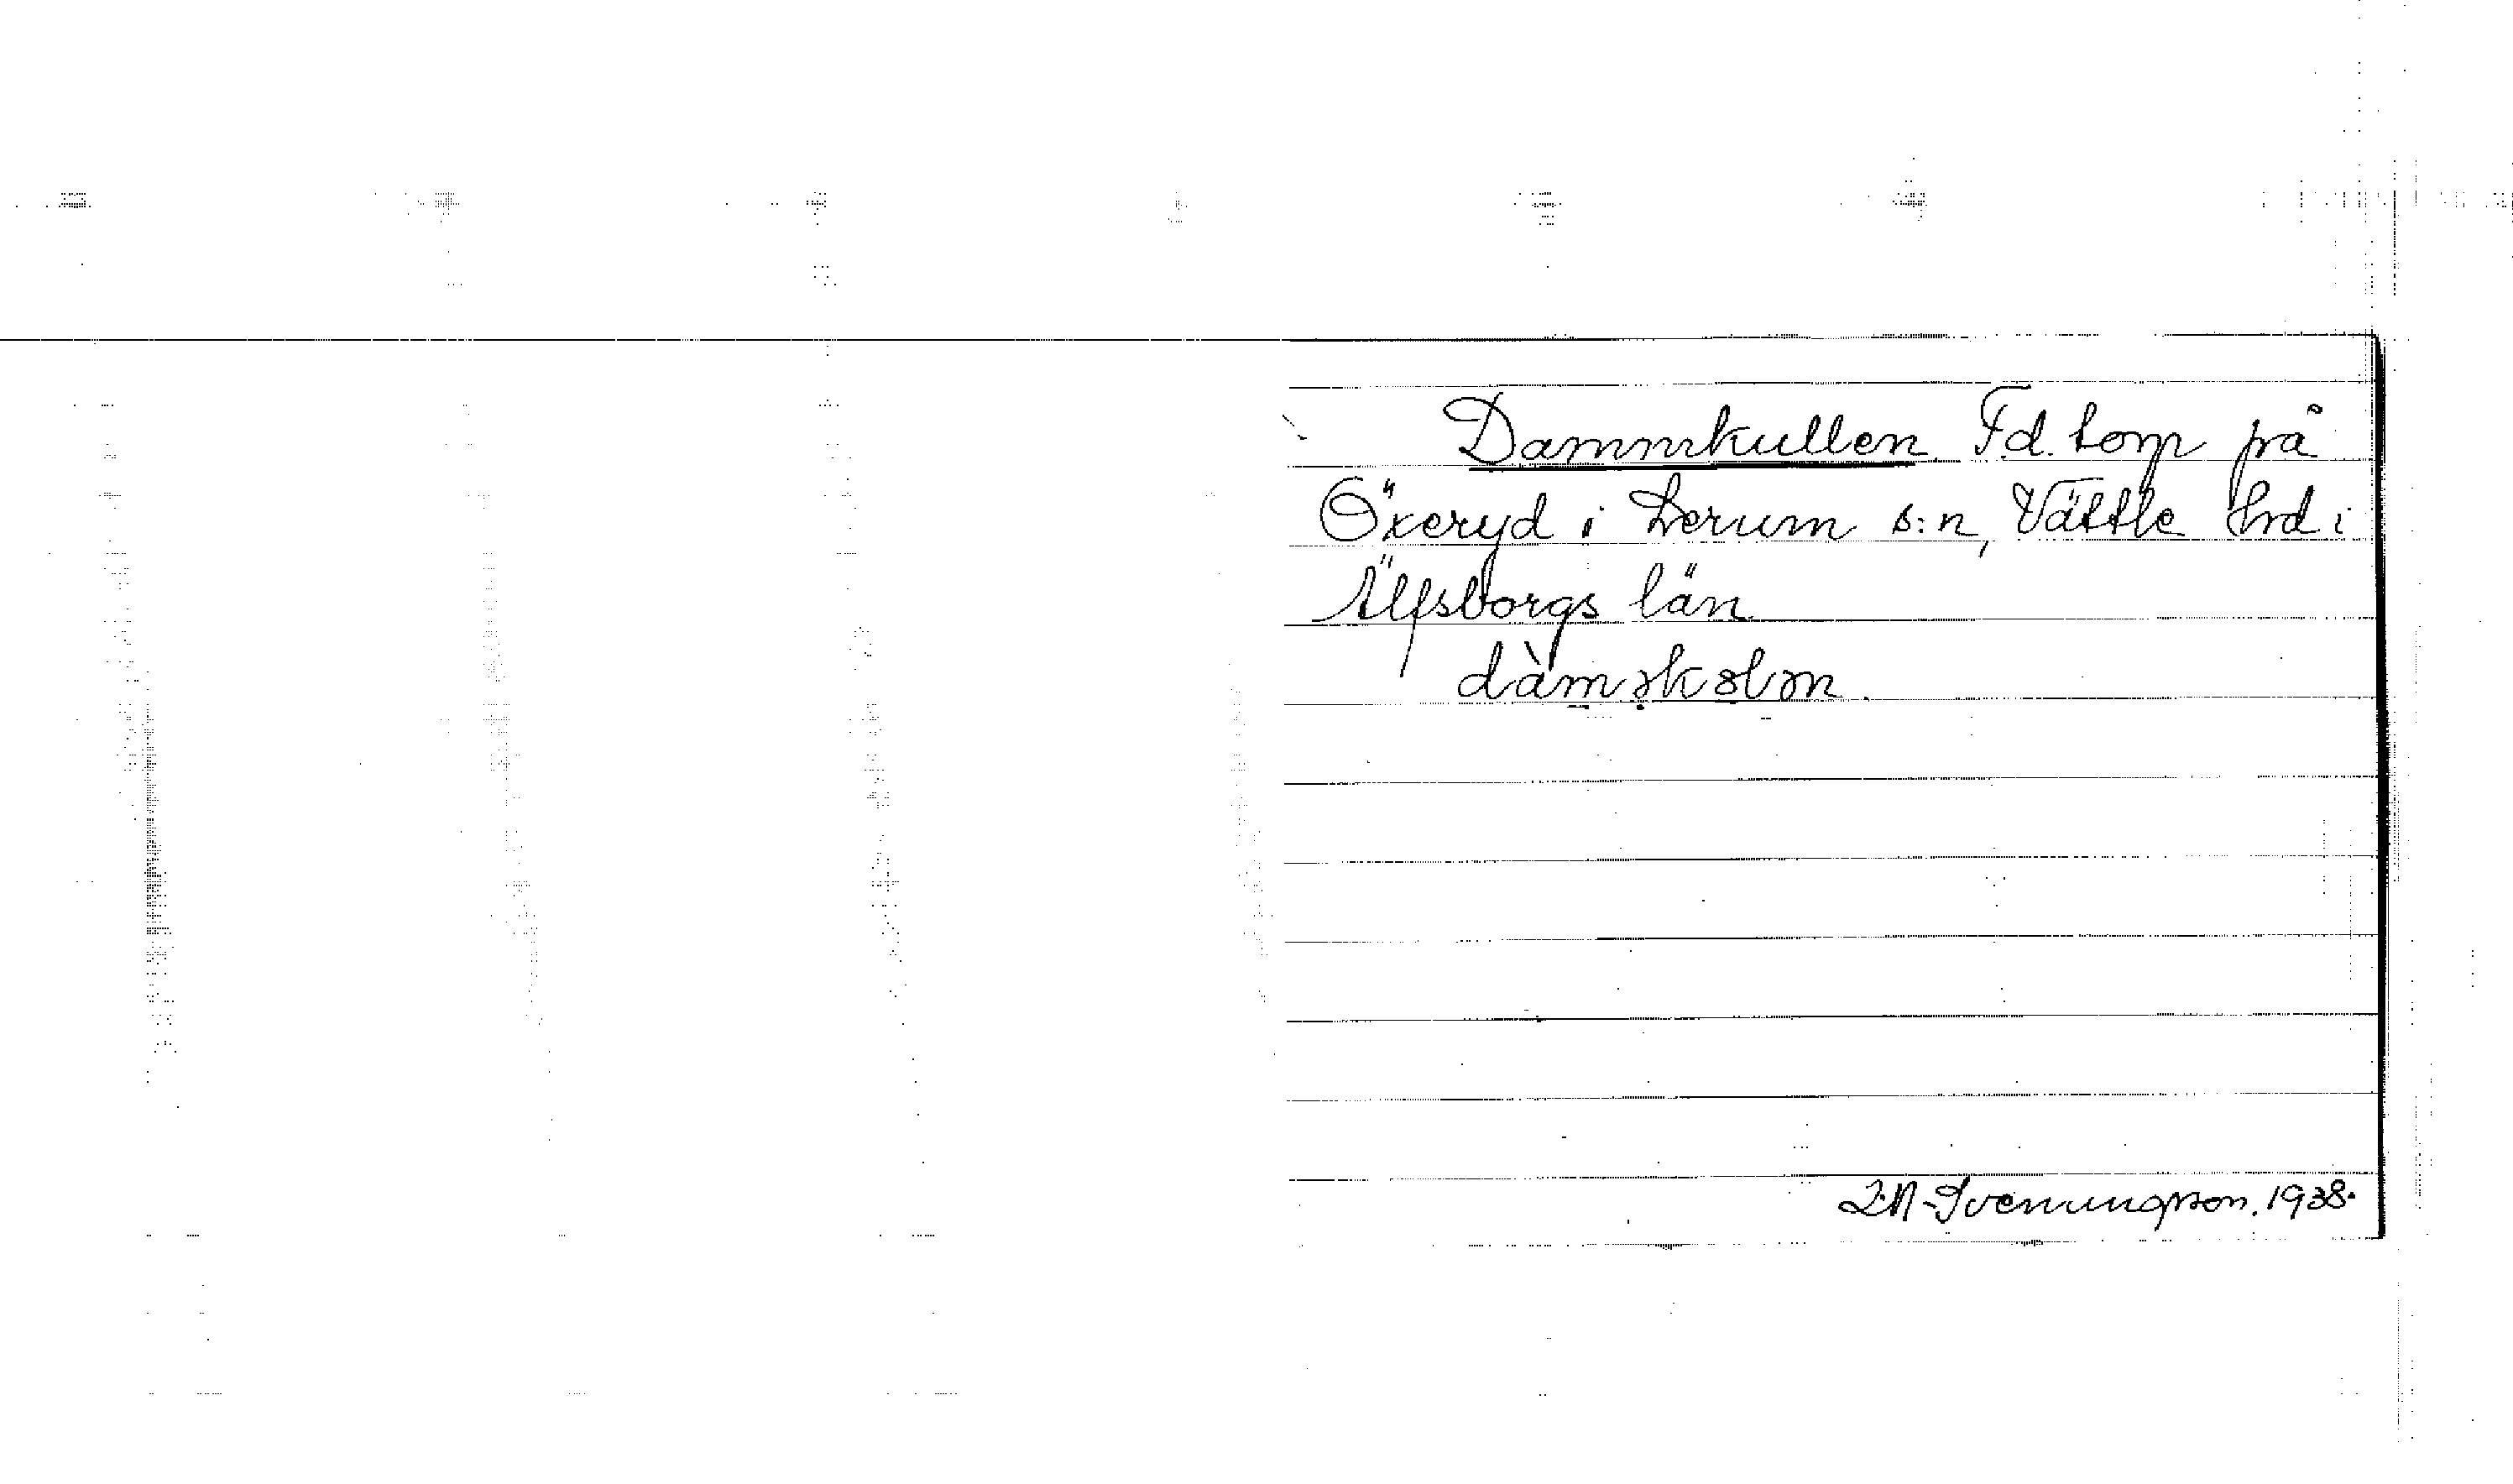 Dammkullen F.d. torp på
Öxeryd i Lerum s:n, Vättle hrd i
Älfsborgs län
Svenungsson. 1938.